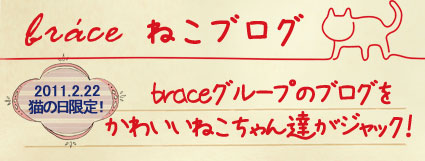 bráce ねこブログ
2011.2.22
猫の日限定!
braceグループのブログを
かわいいねこちゃん達がジャック!